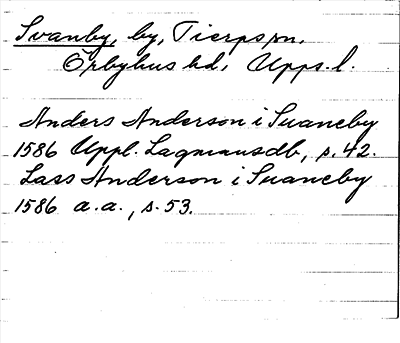 Svanby, by, Tierps sn,
Örbyhus hd, Upps. l.
Anders Anderson i Suaneby
1586 Uppl. Lagmansdb, s. 42.
Lass Anderson i Suaneby
1586 a.a., s. 53.